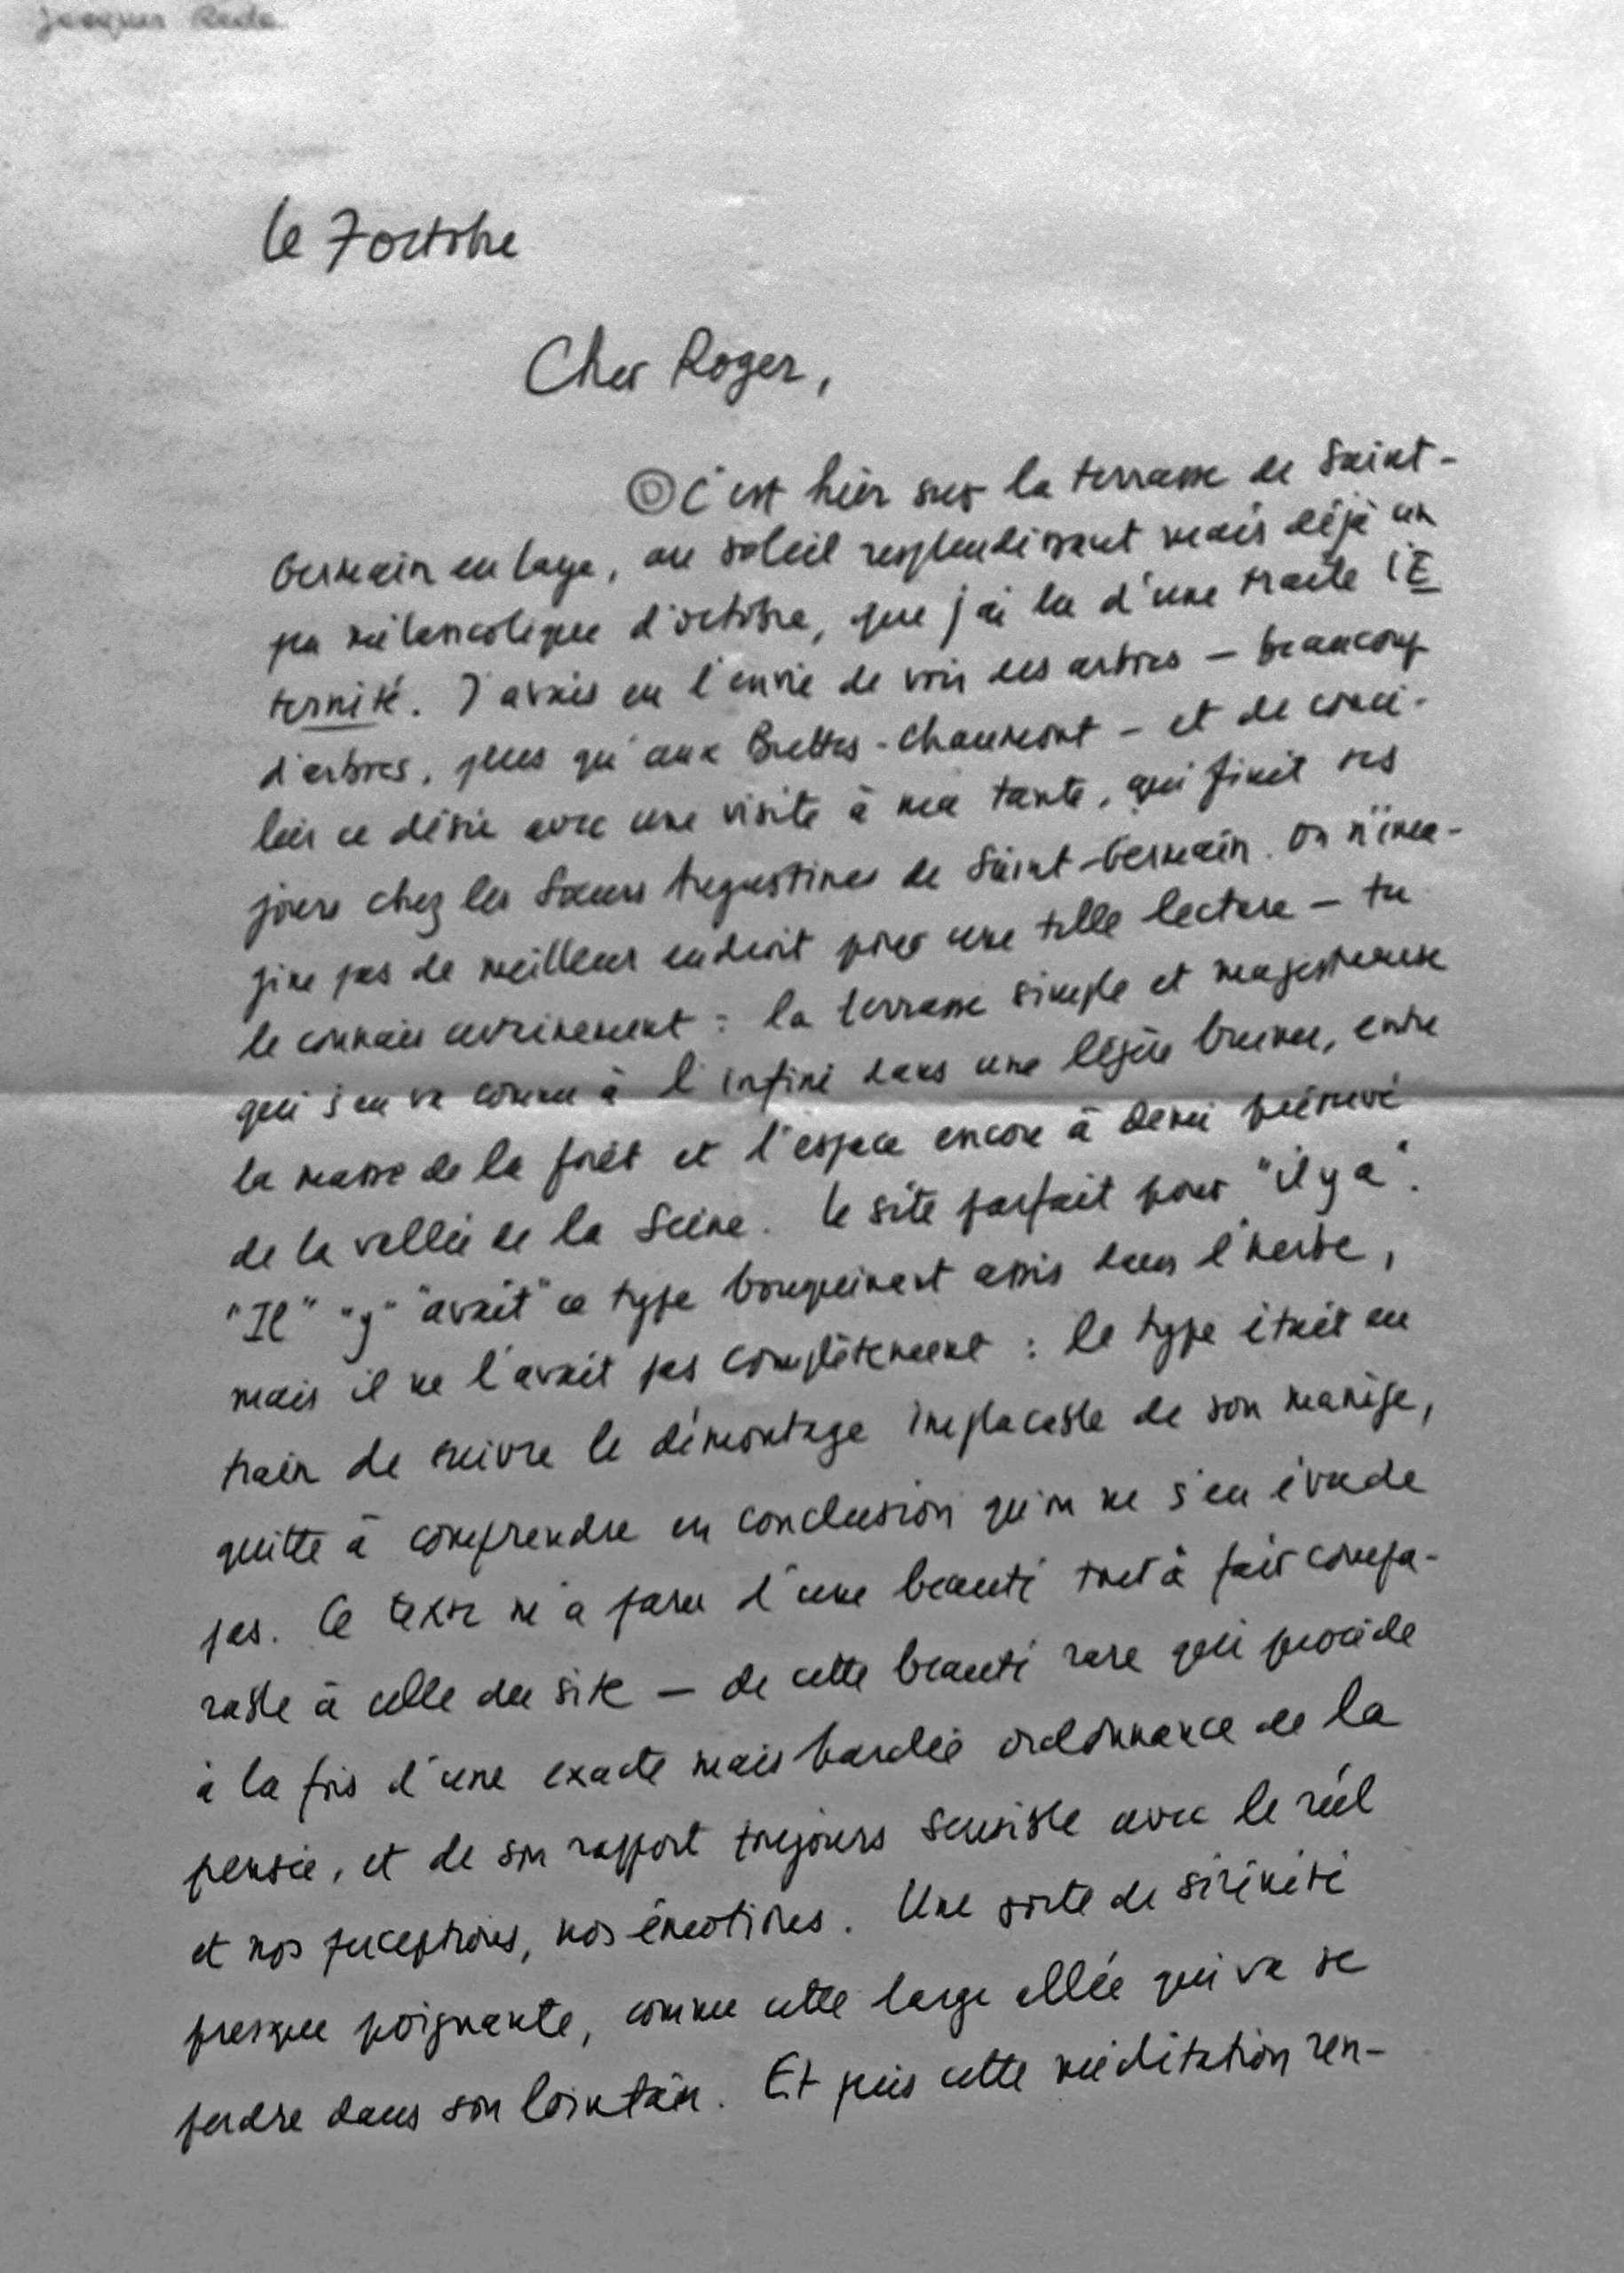 Jacques Réda
le 7 octobre
Cher Roger,
C'est hier sur la terrasse de Saint-
Germain en Laye, au soleil resplendissant mais déjà un
peu mélancolique d'octobre, que j'ai lu d'une traite l'E
ternité. J'avais eu l'envie de voir des arbres — beaucoup
d'arbres, plus qu'aux Buttes-Chaumont — et de conci-
lier ce désir avec une visite à ma tante, qui finit ses
jours chez les Sœurs Augustines de Saint-Germain. On n'ima-
gine pas de meilleur endroit pour une telle lecture — tu
le connais certainement : la terrasse simple et majestueuse
qui s'en va comme à l'infini dans une légère brume, entre
la masse de la forêt et l'espace encore à demi préservé
de la vallée de la Seine. Le site parfait pour "il y a".
"Il" "y" "avait" ce type bouquinant assis dans l'herbe,
mais il ne l'avait pas complètement : le type était en
train de suivre le démontage implacable de son manège,
quitte à comprendre en conclusion qu'on ne s'en évade
pas. Ce texte m'a paru d'une beauté tout à fait compa-
rable à celle du site — de cette beauté rare qui procède
à la fois d'une exacte mais hardie ordonnance de la
pensée, et de son rapport toujours sensible avec le réel
et nos perceptions, nos émotions. Une sorte de sérénité
presque poignante, comme cette large allée qui va se
perdre dans son lointain. Et puis cette méditation ren-